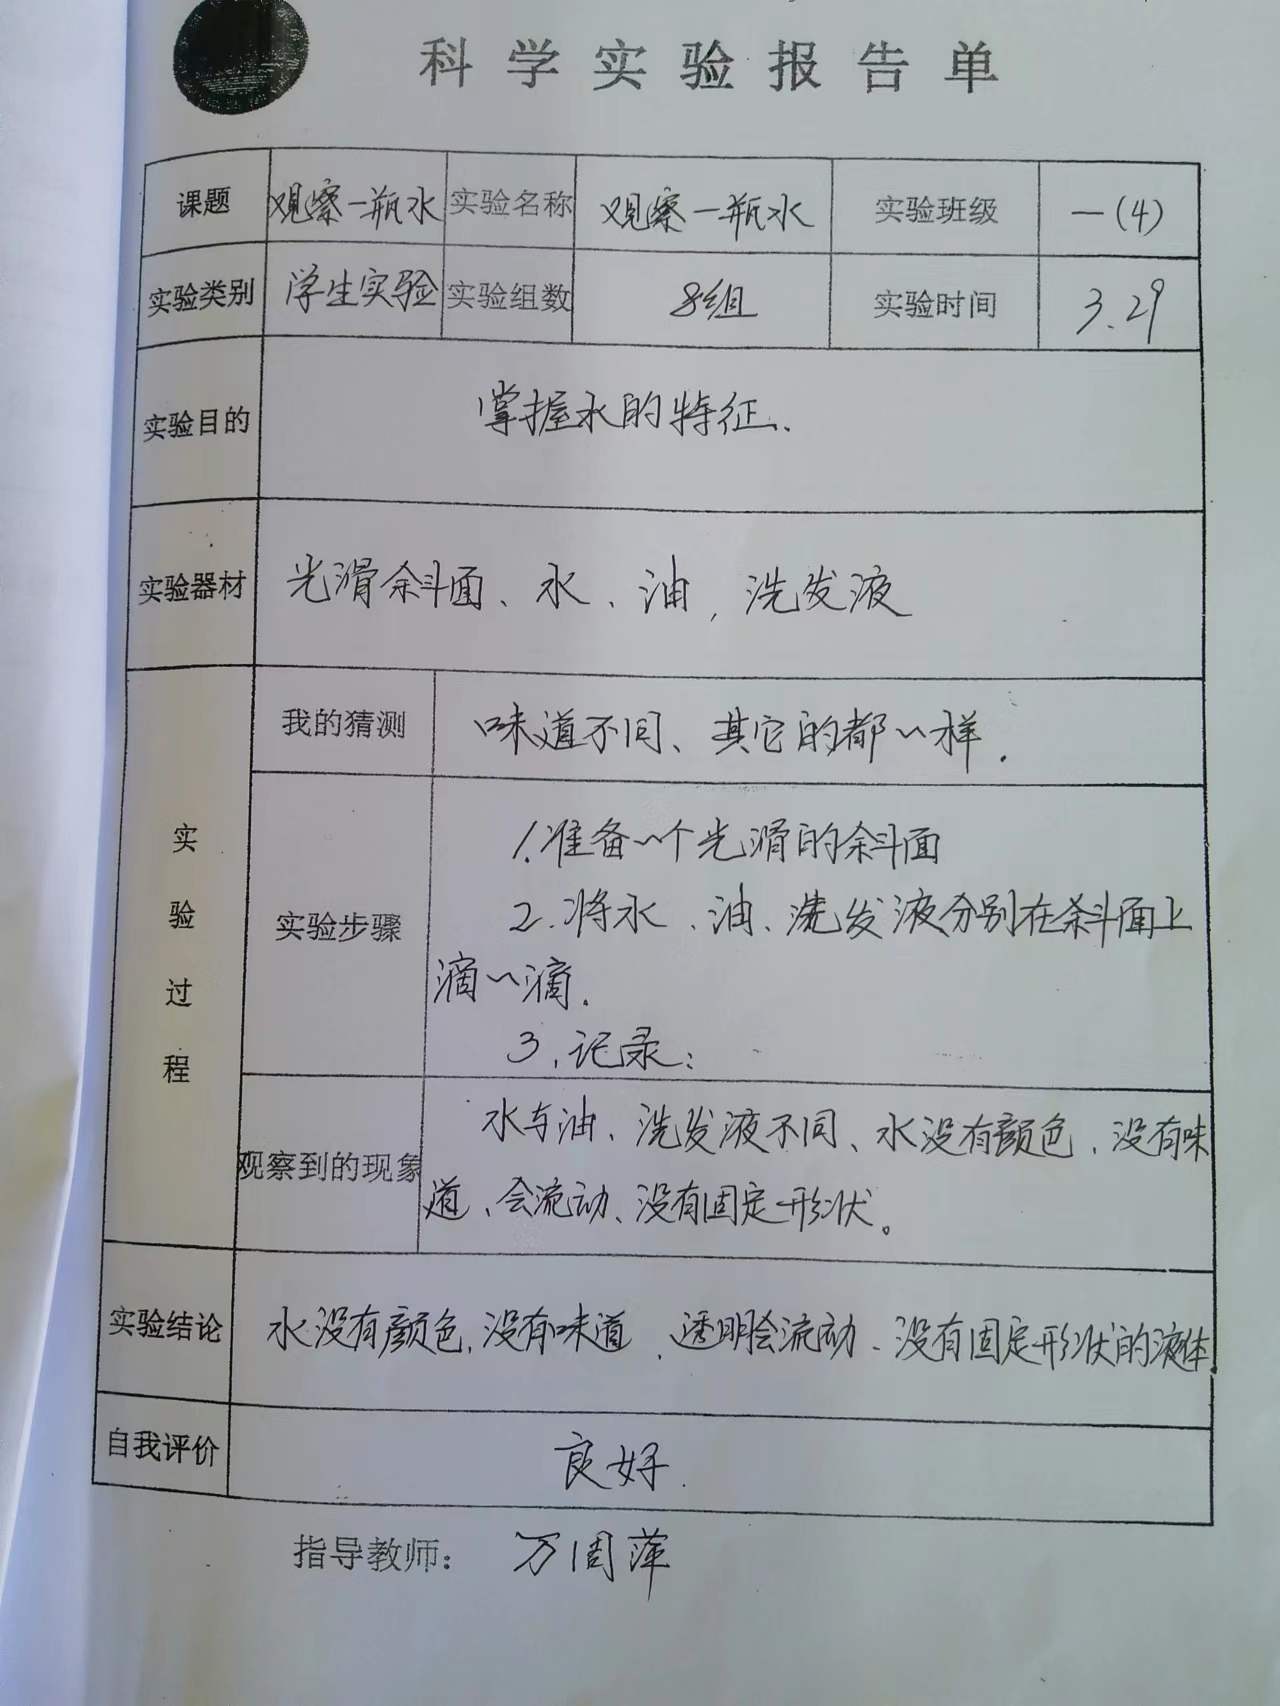 科学实验报告单
课题 观察一瓶水 实验名称 观察一瓶水 实验班级 一(4)
实验类别 学生实验 实验组数 8组 实验时间 3.29
实验目的 掌握水的特征.
实验器材 光滑斜面、水、油,洗发液
实验过程
我的猜测 味道不同、其它的都一样.
实验步骤
1.准备一个光滑的斜面
2.将水、油、洗发液分别在斜面上
滴一滴.
3.记录:
观察到的现象
水与油、洗发液不同、水没有颜色、没有味
道、会流动、没有固定形状。
实验结论 水没有颜色,没有味道、透明会流动、没有固定形状的液体.
自我评价 良好.
指导教师: 万周萍